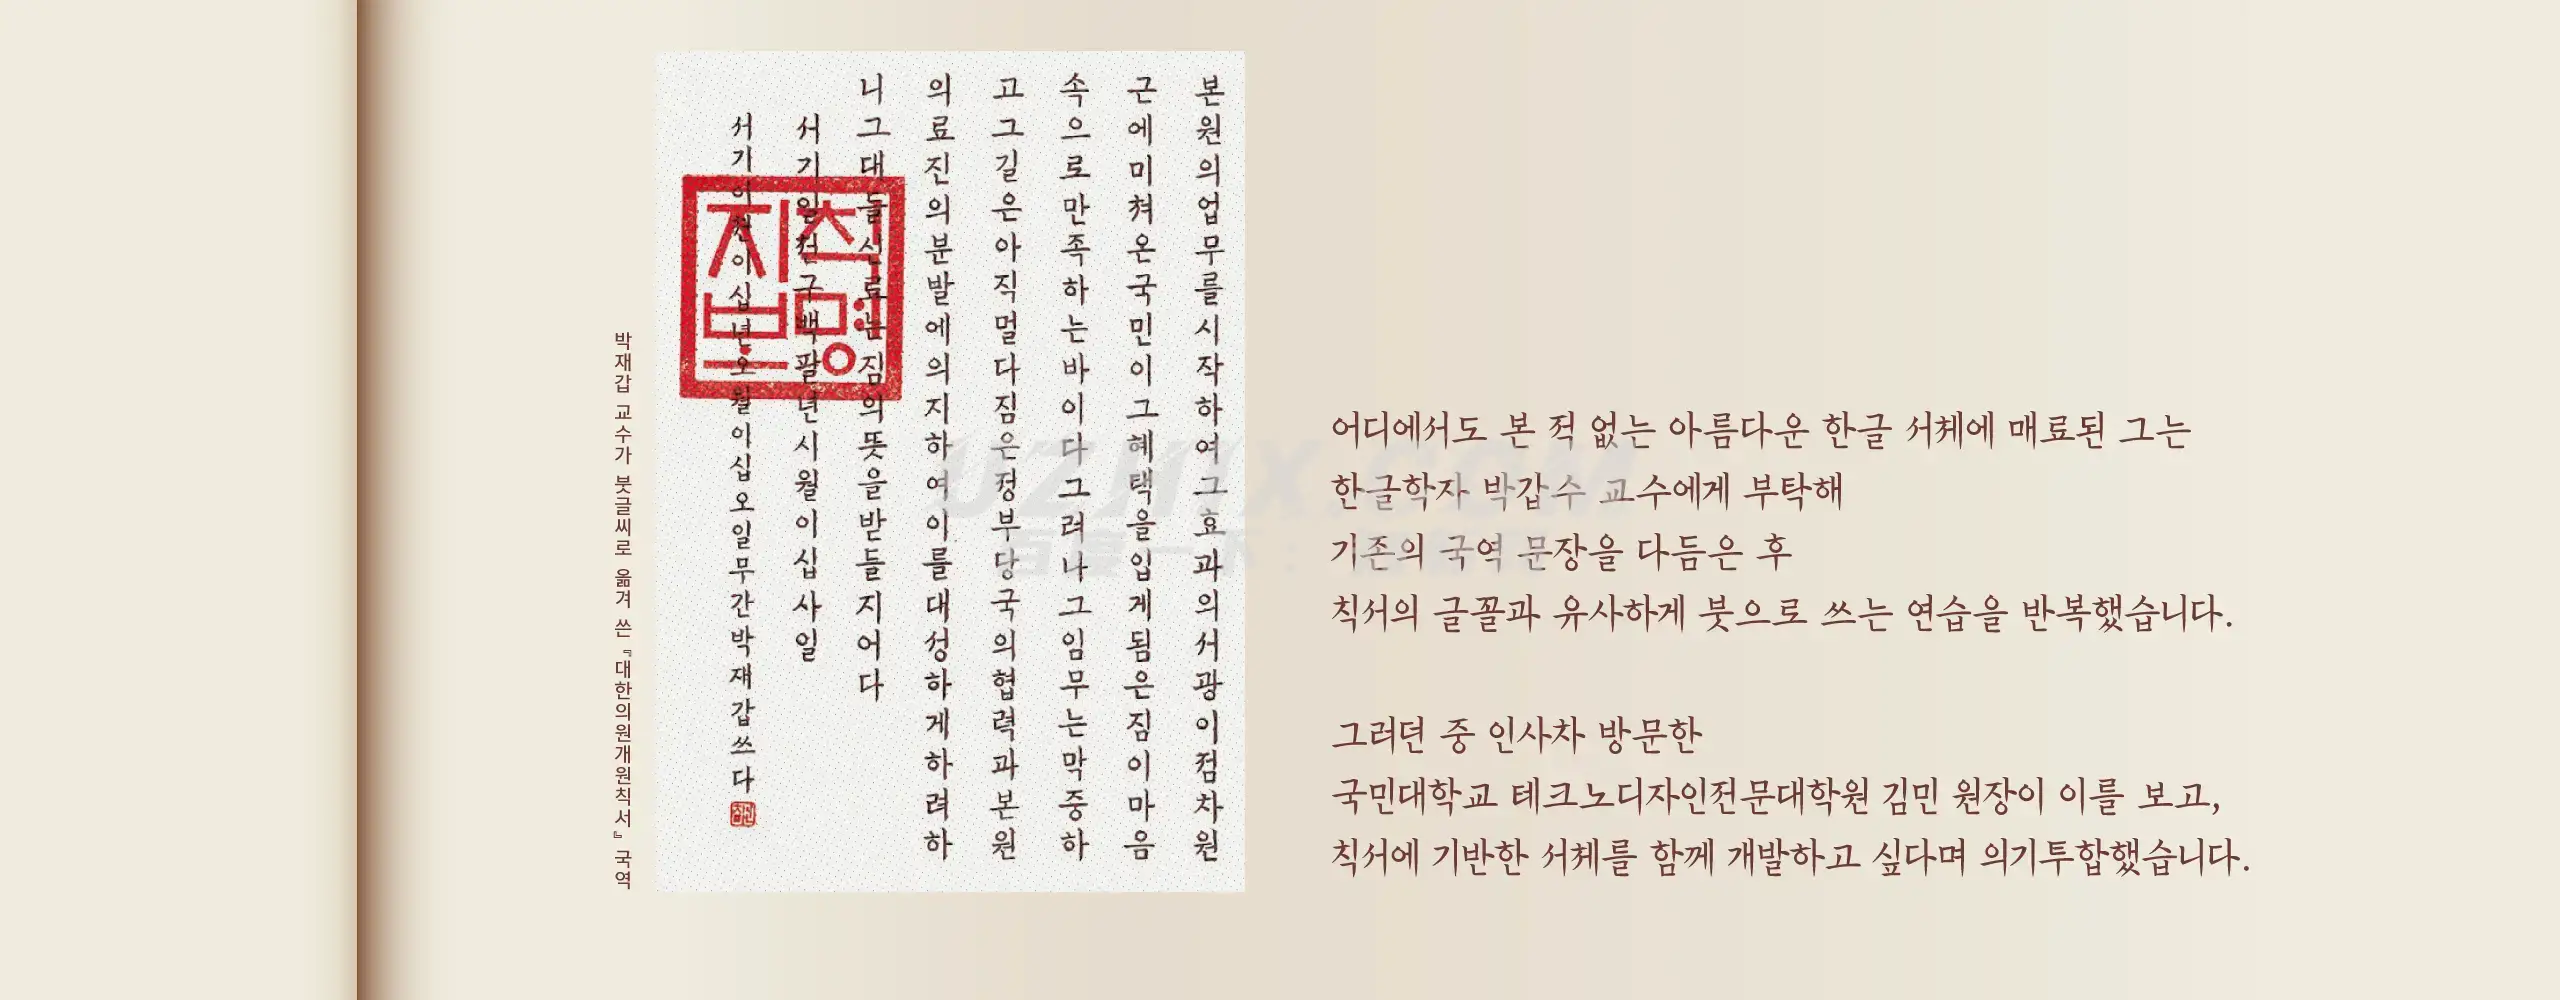 박재갑 교수가 붓글씨로 옮겨 쓴 『대한의원개원칙서』 국역
본원의업무를시작하여그효과의서광이점차원
근에미쳐온국민이그혜택을입게됨은짐이마음
속으로만족하는바이다그러나그임무는막중하
고그길은아직멀다짐은정부당국의협력과본원
의료진의분발에의지하여이를대성하게하려하
니그대들신료는짐의뜻을받들지어다
서기일천구백팔년시월이십사일
서기이천이십년오월이십오일무간박재갑쓰다
칙명
지보
어디에서도 본 적 없는 아름다운 한글 서체에 매료된 그는
한글학자 박갑수 교수에게 부탁해
기존의 국역 문장을 다듬은 후
칙서의 글꼴과 유사하게 붓으로 쓰는 연습을 반복했습니다.
그러던 중 인사차 방문한
국민대학교 테크노디자인전문대학원 김민 원장이 이를 보고,
칙서에 기반한 서체를 함께 개발하고 싶다며 의기투합했습니다.
UZMIX.COM
百度一下：